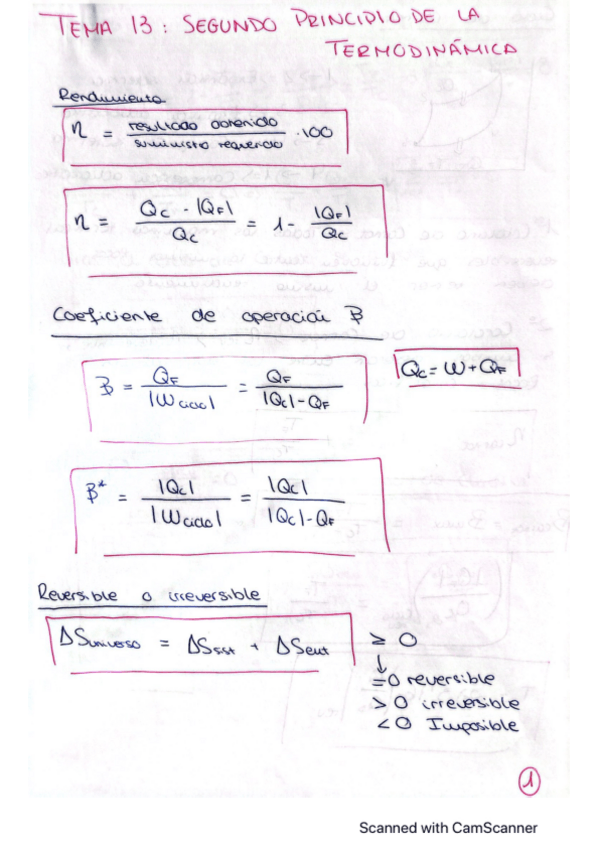 TEMA 13: SEGUNDO PRINCIPIO DE LA
TERMODINÁMICA
Rendimiento
η = resultado obtenido / suministro requerido · 100
η = QC - |QF| / QC = 1 - |QF| / QC
Coeficiente de operación β
β = QF / |Wciclo| = QF / |QC| - QF
QC = W + QF
β* = |QC| / |Wciclo| = |QC| / |QC| - QF
Reversible o irreversible
ΔSuniverso = ΔSsist + ΔSent ≥ 0
↓
=0 reversible
> 0 irreversible
< 0 Imposible
1
Scanned with CamScanner